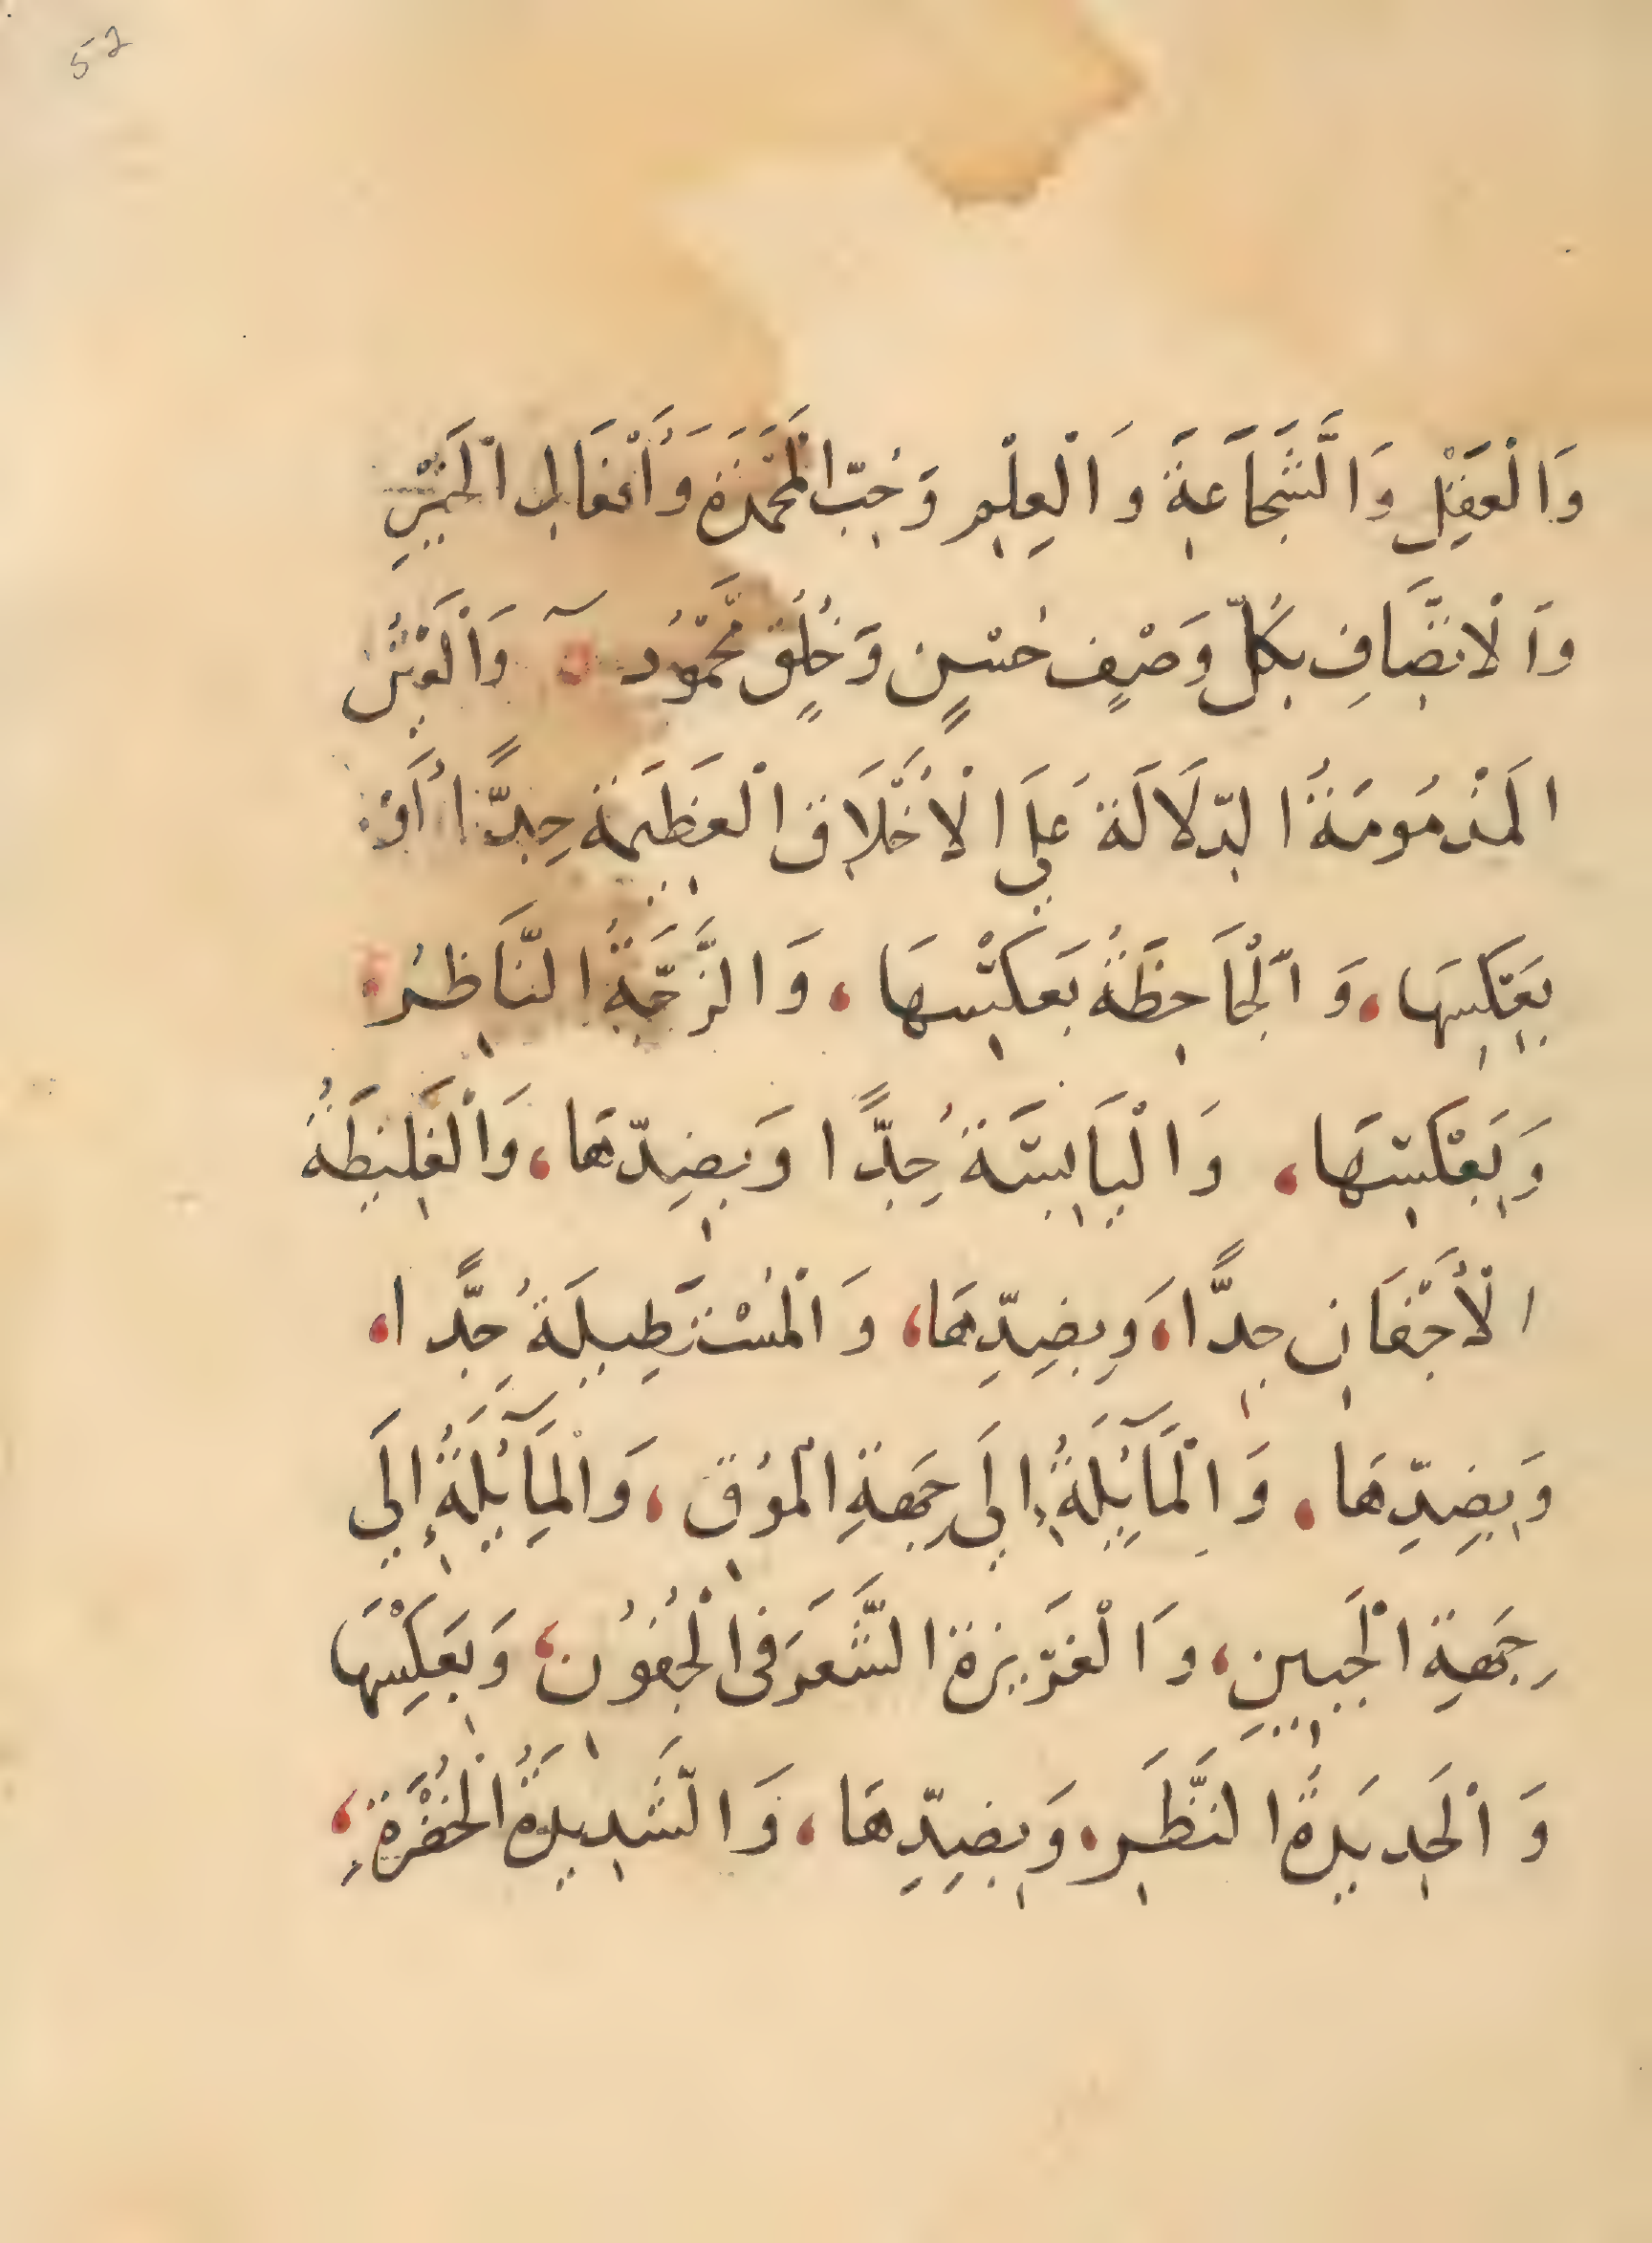 52
وَالْعَقْلِ وَالشَّجَاعَةِ وَالْعِلْمِ وَحُبِّ الْمَحْمَدَةِ وَأَفْعَالِ الْخَيْرِ
وَالْاتِّصَافِ بِكُلِّ وَصْفٍ حَسَنٍ وَخُلُقٍ مَحْمُودٍ وَالْعَيْنُ
الْمَذْمُومَةُ الدِّلَالَةِ عَلَى الْأَخْلَاقِ الْعَظِيمَةُ جِدًّا أَوْ
بِعَكْسِهَا، وَالْجَاحِظَةُ بِعَكْسِهَا، وَالنَّاظِرُ
وَبِعَكْسِهَا، وَالْيَابِسَةُ جِدًّا وَبِضِدِّهَا، وَالْغَلِيظَةُ
الْأَجْفَانِ جِدًّا، وَبِضِدِّهَا، وَالْمُسْتَطِيلَةُ جِدًّا،
وَبِضِدِّهَا، وَالْمَآئِلَةُ إِلَى جِهَةِ الْمُوقِ، وَالْمَآئِلَةُ إِلَى
جِهَةِ الْجَبِينِ، وَالْغَزِيزَةُ الشَّعَرِ فِى الْجُفُونِ، وَبِعَكْسِهَا
وَالْحَدِيدَةُ النَّظَرِ، وَبِضِدِّهَا، وَالشَّدِيدَةُ الْخُضْرَةِ،